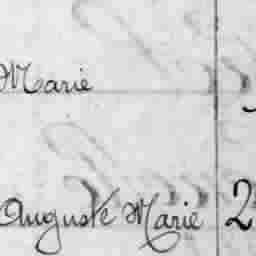 Marie
Auguste Marie 2